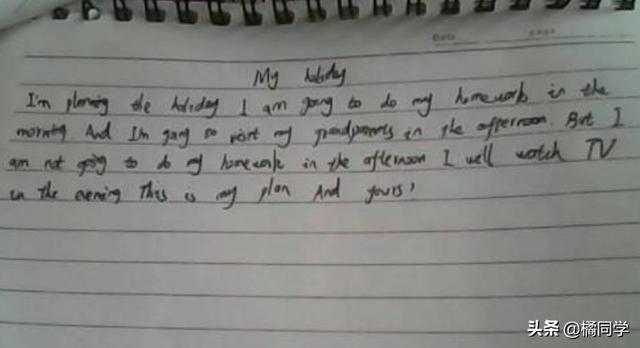 My holiday
I'm planing the holiday I am going to do my homework in the
morning And I'm gong to visit my grandparents in the afternoon. But I
am not going to do my homework in the afternoon I well watch TV
in the evening This is my plan And yours?
头条 @橘同学